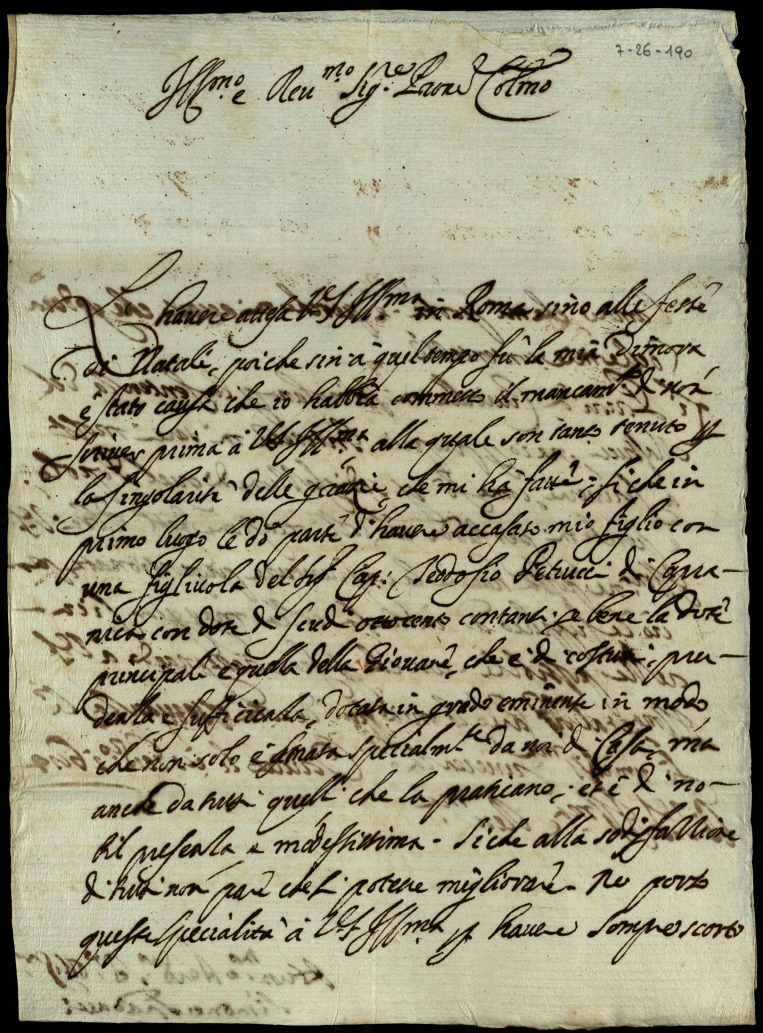 7-26-190
Ill.mo e Reu.mo Sig.re Prone Colmo
L'hauere attesa V.S. Ill.ma in Roma sino alle feste
di Natale, poiche sin à quel tempo fù la mia dimora
è stato causa che io habbia commesso il mancam.to di non
scriuer prima à V.S. Ill.ma alla quale son tanto tenuto p
la singolarità delle grazie, che mi hà fatte; si che in
primo luogo le dò parte d'hauere accasato mio figlio con
una figliuola del Sig.r Cap: Teodosio Petrucci di Capra-
nica con dote di scudi ottocento contanti, se bene la dote
principale è quella della Giouane, che è di costumi, pru-
denza e sufficienza, dotata in grado eminente in modo
che non solo è amata specialm.te da noi di Casa, ma
anche da tutti quelli che la praticano, et è di no-
bil presenza e modestissima. Siche alla sodisfattione
di tutti non pare che si potesse migliorare. Ne porto
queste specialità à V.S. Ill.ma p hauere sempre scorto